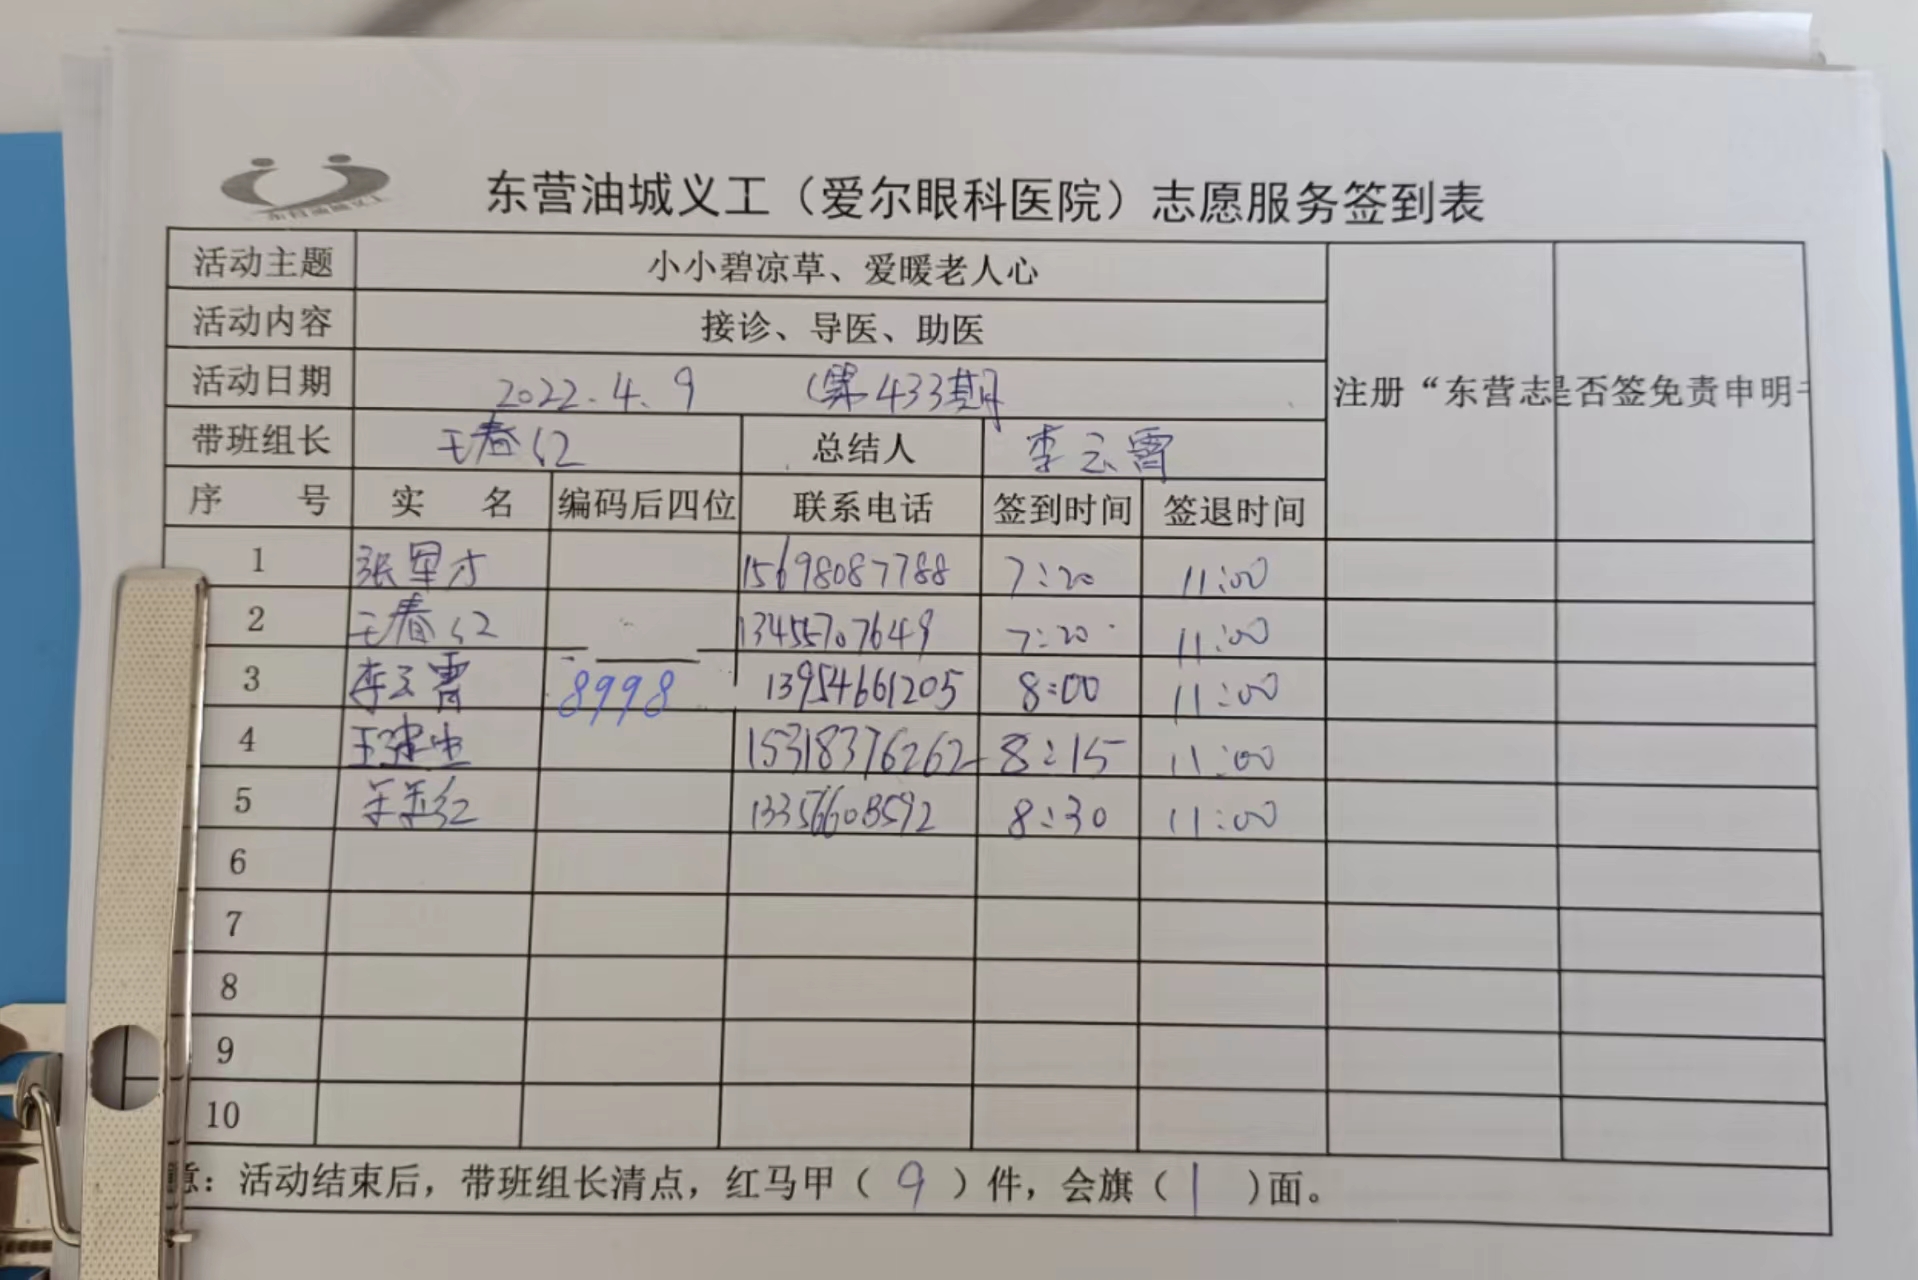 东营油城义工
东营油城义工（爱尔眼科医院）志愿服务签到表
活动主题 小小碧凉草、爱暖老人心
活动内容 接诊、导医、助医
活动日期 2022.4.9 (第433期
注册“东营志 是否签免责申明
带班组长 王春红 总结人 李云霄
序号 实名 编码后四位 联系电话 签到时间 签退时间
1 张军才 15698087788 7:20 11:00
2 王春红 13455707649 7:20 11:00
3 李云霄 8998 13954661205 8:00 11:00
4 15318376262 8:15 11:00
5 8:30 11:00
6
7
8
9
10
意：活动结束后，带班组长清点，红马甲（9）件，会旗（1）面。